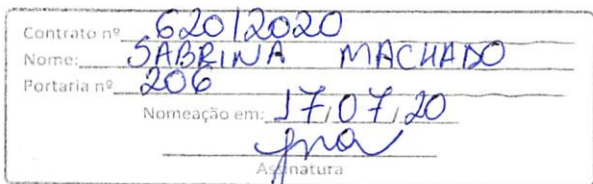 Contrato nº 620/2020
Nome: SABRINA MACHADO
Portaria nº 206
Nomeação em: 17/07/20
Assinatura